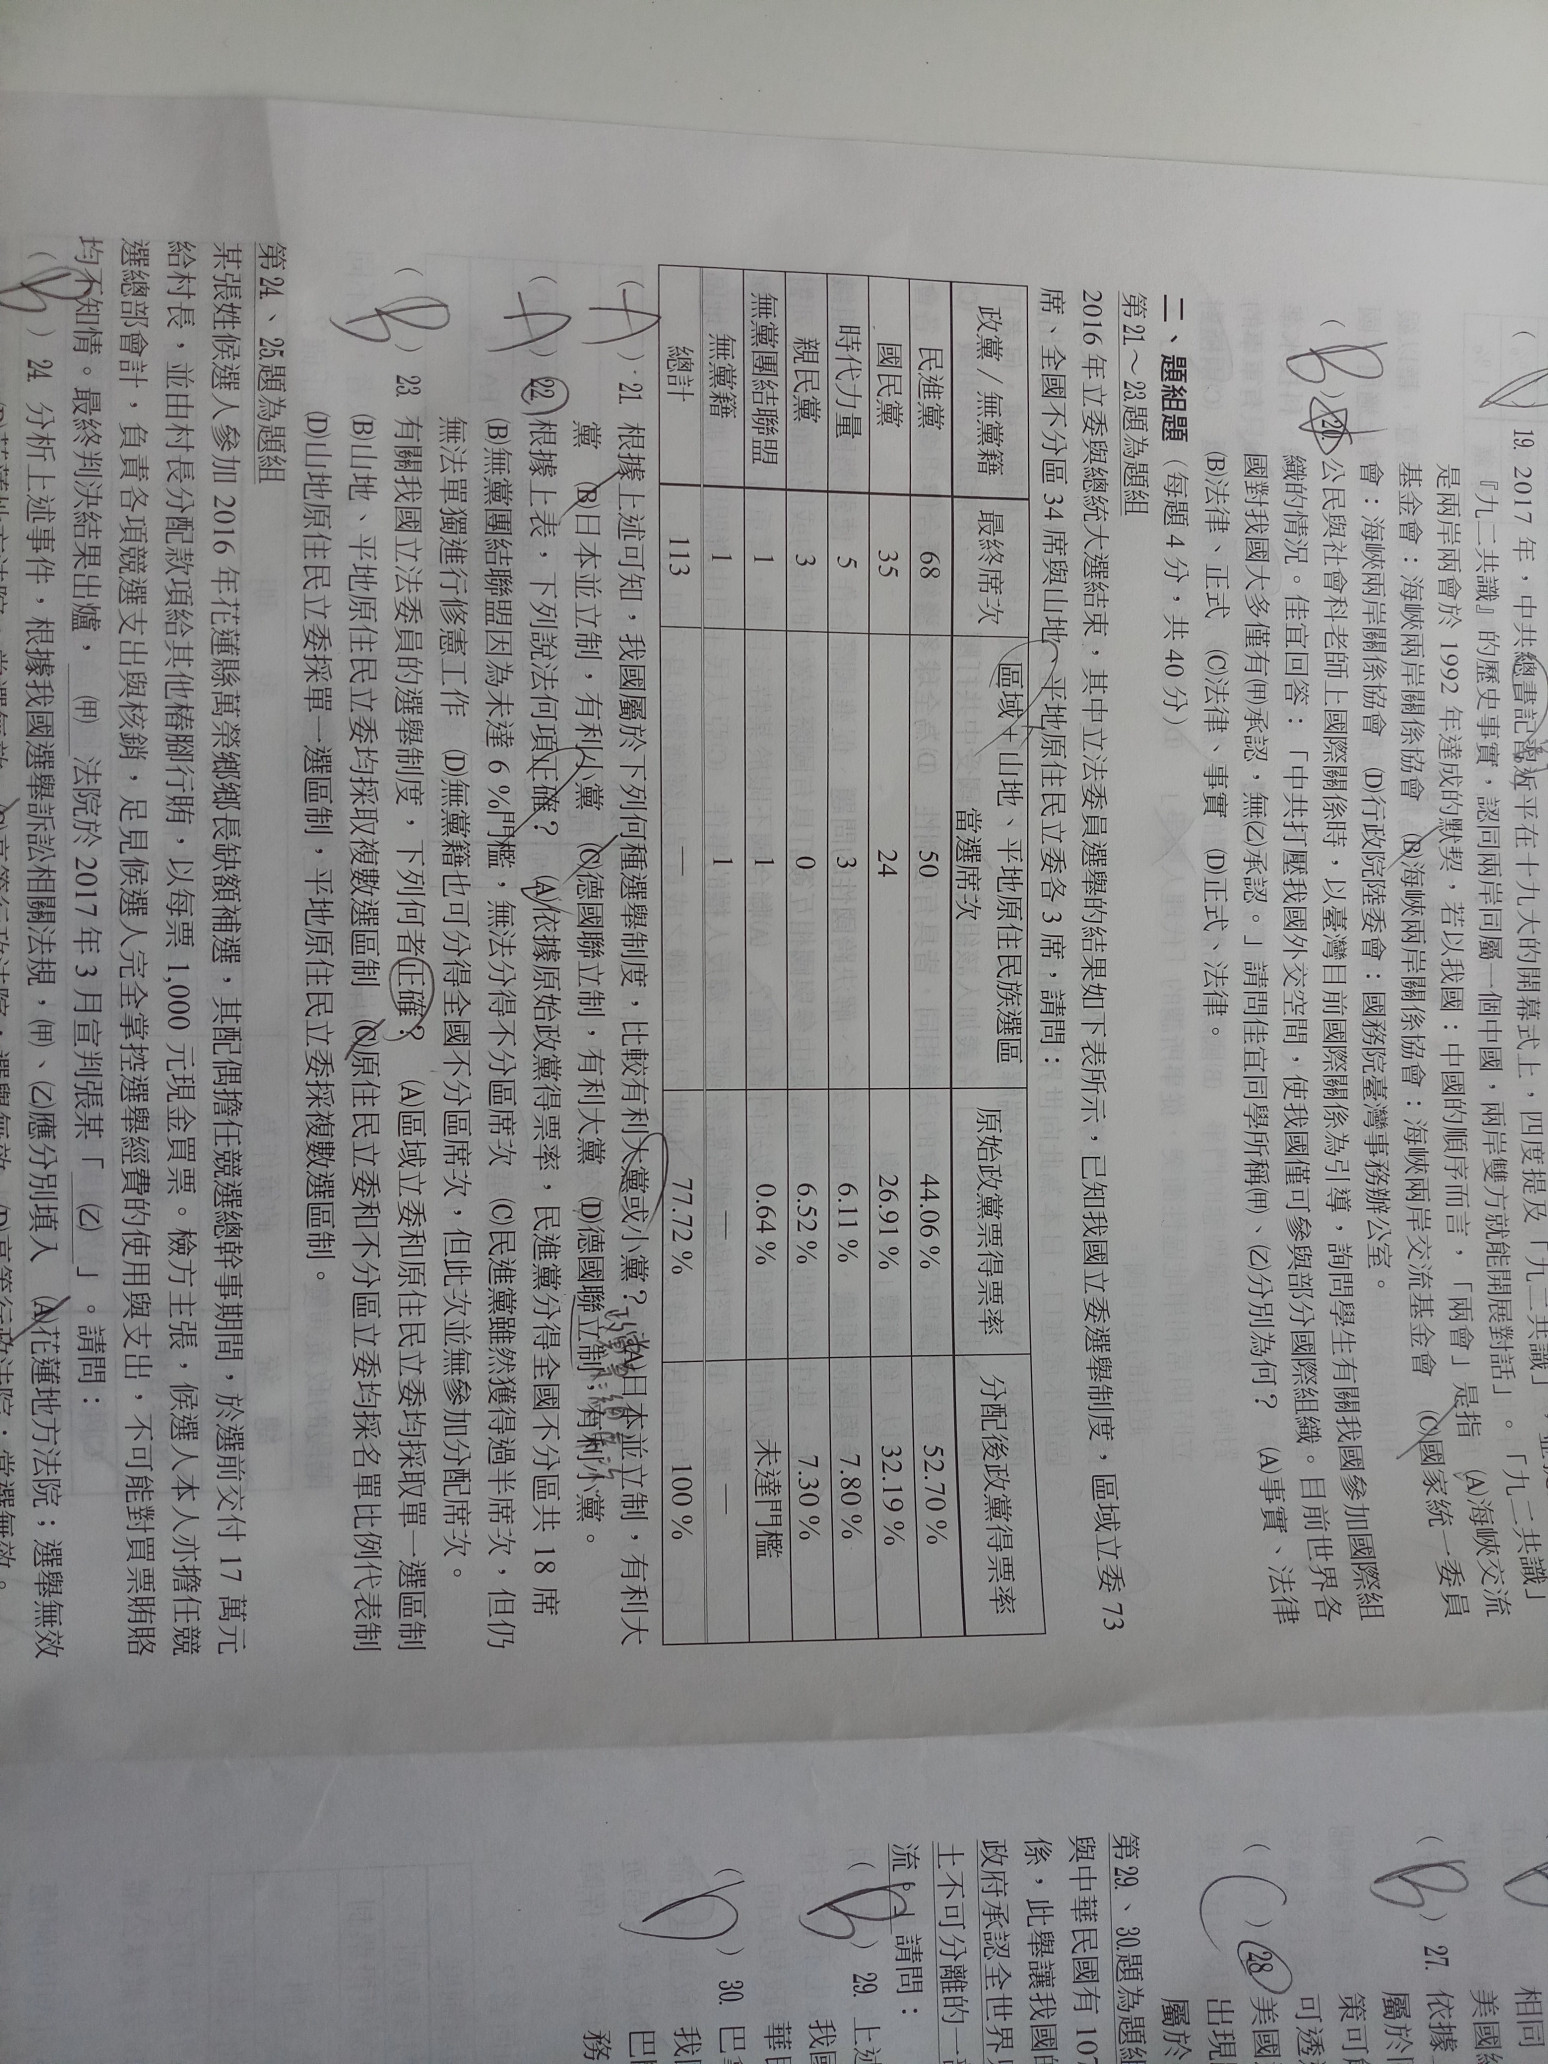 19. 2017 年，中共總書記習近平在十九大的開幕式上，四度提及「九二共識」
『九二共識』的歷史事實，認同兩岸同屬一個中國，兩岸雙方就能開展對話」。「九二共識」
是兩岸兩會於 1992 年達成的默契，若以我國：中國的順序而言，「兩會」是指 (A)海峽交流
基金會：海峽兩岸關係協會 (B)海峽兩岸關係協會：海峽兩岸交流基金會 (C)國家統一委員
會：海峽兩岸關係協會 (D)行政院陸委會：國務院臺灣事務辦公室。
( B ) 20. 公民與社會科老師上國際關係時，以臺灣目前國際關係為引導，詢問學生有關我國參加國際組
織的情況。佳宜回答：「中共打壓我國外交空間，使我國僅可參與部分國際組織。目前世界各
國對我國大多僅有(甲)承認，無(乙)承認。」請問佳宜同學所稱(甲)、(乙)分別為何？ (A)事實、法律
(B)法律、正式 (C)法律、事實 (D)正式、法律。
二、題組題（每題 4 分，共 40 分）
第21～23題為題組
2016 年立委與總統大選結束，其中立法委員選舉的結果如下表所示，已知我國立委選舉制度，區域立委 73
席、全國不分區 34 席與山地、平地原住民立委各 3 席，請問：
政黨／無黨籍 最終席次 區域＋山地、平地原住民族選區當選席次 原始政黨票得票率 分配後政黨得票率
民進黨 68 50 44.06％ 52.70％
國民黨 35 24 26.91％ 32.19％
時代力量 5 3 6.11％ 7.80％
親民黨 3 0 6.52％ 7.30％
無黨團結聯盟 1 1 0.64％ 未達門檻
無黨籍 1 1 — —
總計 113 — 77.72％ 100％
( A ) 21. 根據上述可知，我國屬於下列何種選舉制度，比較有利大黨或小黨？ (A)日本並立制，有利大
黨 (B)日本並立制，有利小黨 (C)德國聯立制，有利大黨 (D)德國聯立制，有利小黨。
( A ) 22. 根據上表，下列說法何項正確？ (A)依據原始政黨得票率，民進黨分得全國不分區共 18 席
(B)無黨團結聯盟因為未達 6％門檻，無法分得不分區席次 (C)民進黨雖然獲得過半席次，但仍
無法單獨進行修憲工作 (D)無黨籍也可分得全國不分區席次，但此次並無參加分配席次。
( B ) 23. 有關我國立法委員的選舉制度，下列何者正確？ (A)區域立委和原住民立委均採取單一選區制
(B)山地、平地原住民立委均採取複數選區制 (C)原住民立委和不分區立委均採名單比例代表制
(D)山地原住民立委採單一選區制，平地原住民立委採複數選區制。
第24、25題為題組
某張姓候選人參加 2016 年花蓮縣萬榮鄉鄉長缺額補選，其配偶擔任競選總幹事期間，於選前交付 17 萬元
給村長，並由村長分配款項給其他樁腳行賄，以每票 1,000 元現金買票。檢方主張，候選人本人亦擔任競
選總部會計，負責各項競選支出與核銷，足見候選人完全掌控選舉經費的使用與支出，不可能對買票賄賂
均不知情。最終判決結果出爐，(甲) 法院於 2017 年 3 月宣判張某「 (乙) 」。請問：
( B ) 24. 分析上述事件，根據我國選舉訴訟相關法規，(甲)、(乙)應分別填入 (A)花蓮地方法院；選舉無效
相同
美國
( B ) 27. 依據
屬於
策可
可透
( C ) 28. 美國
出現
屬於
第29、30題為題組
與中華民國有 107
係，此舉讓我國的
政府承認全世界
土不可分離的一部
流」。請問：
( B ) 29. 上述
我國
華民
( D ) 30. 巴拿
我
巴
務